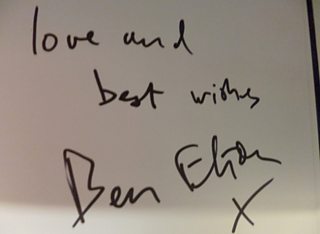 love and
best wishes
Ben Elton
X